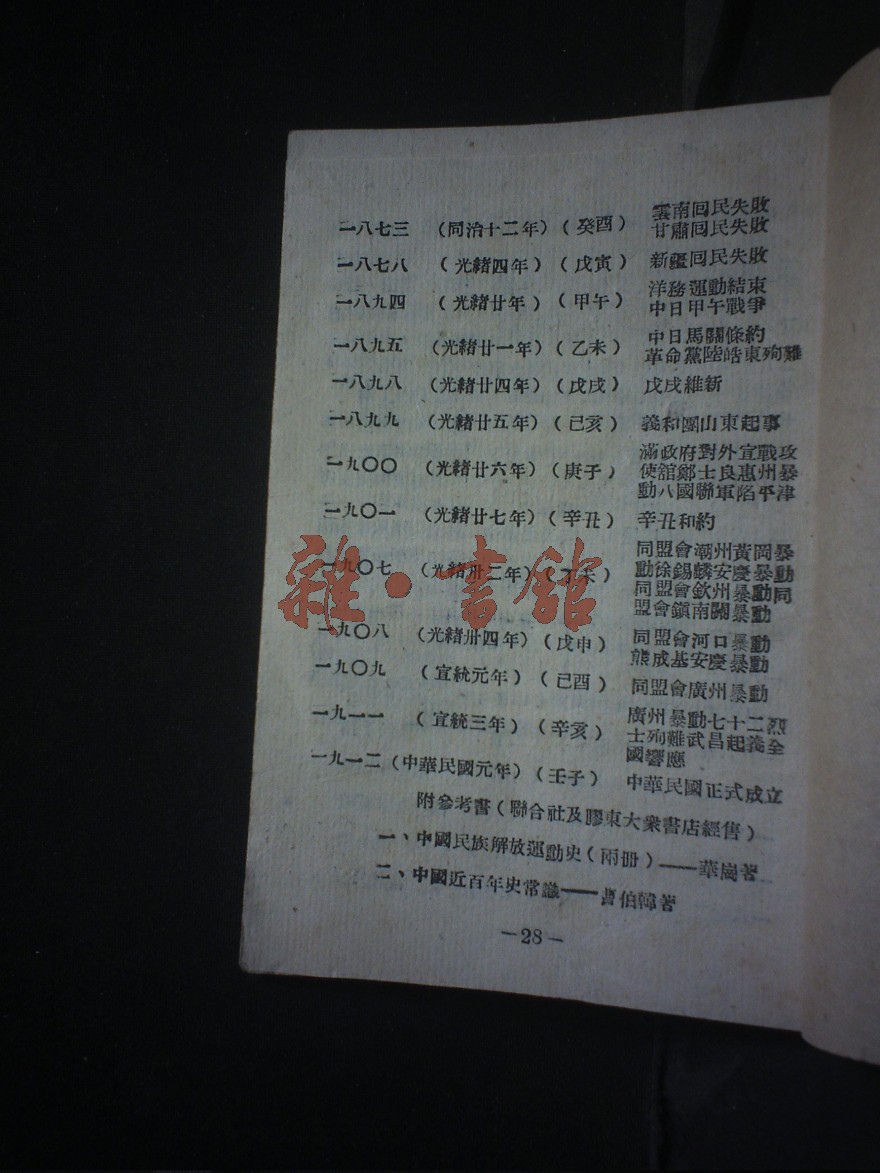 雲南囘民失敗
一八七三 （同治十二年）（癸酉） 甘肅囘民失敗
一八七八 （光緒四年）（戊寅） 新疆囘民失敗
洋務運動結束
一八九四 （光緒廿年）（甲午） 中日甲午戰爭
中日馬關條約
一八九五 （光緒廿一年）（乙未） 革命黨陸皓東殉難
一八九八 （光緒廿四年）（戊戌） 戊戌維新
一八九九 （光緒廿五年）（己亥） 義和團山東起事
滿政府對外宣戰攻
一九〇〇 （光緒廿六年）（庚子） 使舘鄭士良惠州暴
動八國聯軍陷平津
一九〇一 （光緒廿七年）（辛丑） 辛丑和約
同盟會潮州黃岡暴
一九〇七 （光緒卅三年）（丁未） 動徐錫麟安慶暴動
同盟會欽州暴動同
盟會鎮南關暴動
一九〇八 （光緒卅四年）（戊申） 同盟會河口暴動
熊成基安慶暴動
一九〇九 （宣統元年）（己酉） 同盟會廣州暴動
廣州暴動七十二烈
一九一一 （宣統三年）（辛亥） 士殉難武昌起義全
國響應
一九一二（中華民國元年）（壬子） 中華民國正式成立
附參考書（聯合社及膠東大衆書店經售）
一、中國民族解放運動史（兩冊）——華崗著
二、中國近百年史常識——曹伯韓著
—28—
雜·書館